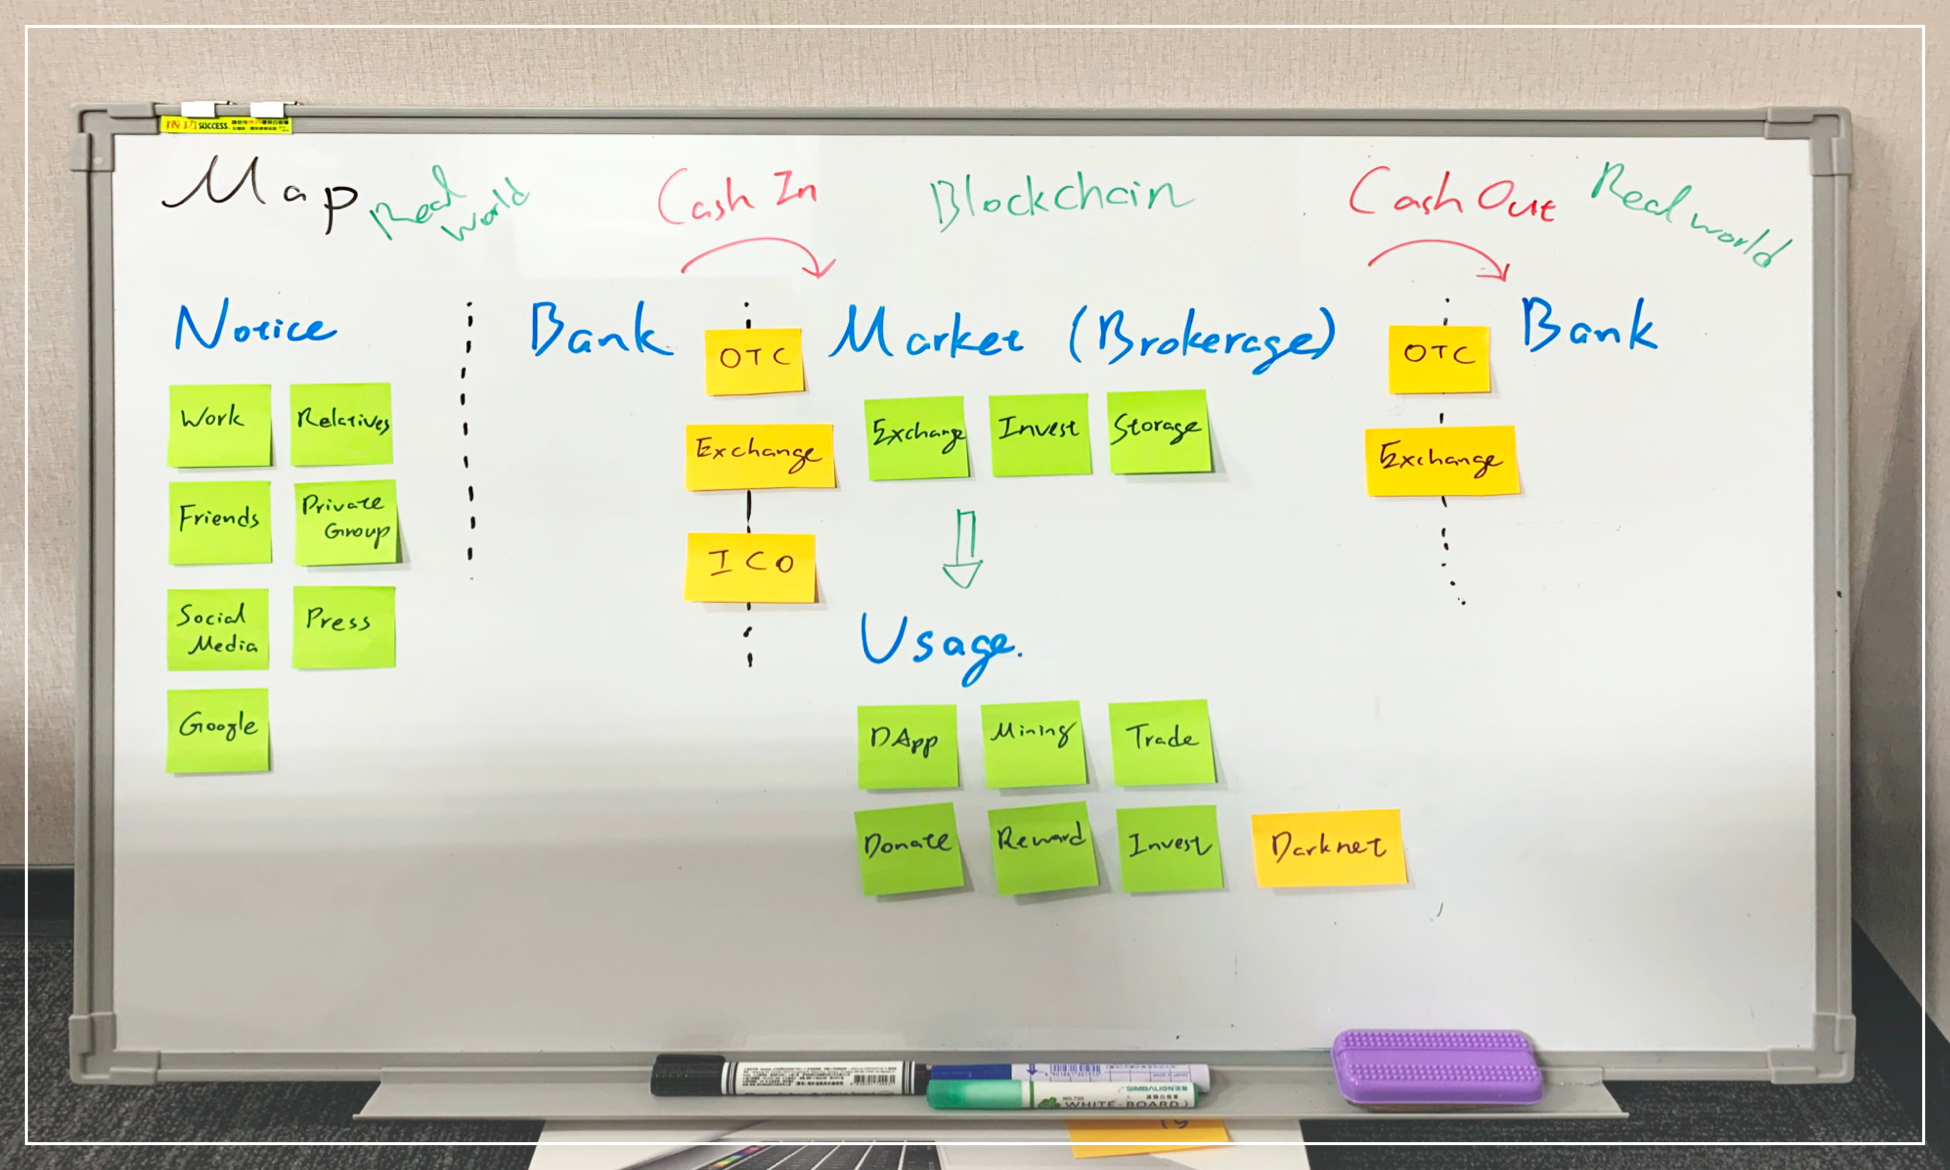 SUCCESS
Map
Real world
Cash In
Blockchain
Cash Out
Real world
Notice
Bank
OTC
Market (Brokerage)
OTC
Bank
Work
Relatives
Exchange
Exchange
Invest
Storage
Exchange
Friends
Private
Group
ICO
Social
Media
Press
Usage.
Google
DApp
Mining
Trade
Donate
Reward
Invest
Darknet
WHITE-BOARD